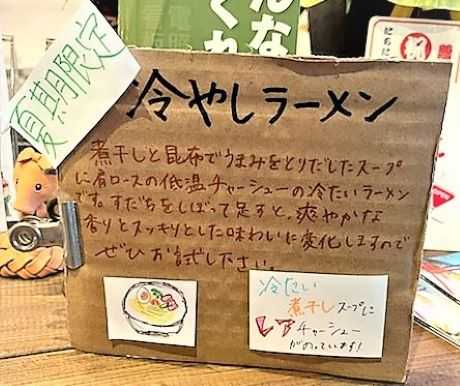 んな
くれ
夏期限定
冷やしラーメン
煮干しと昆布でうまみをとりだしたスープ
に肩ロースの低温チャーシューの冷たいラーメン
です。すだちをしぼって足すと、爽やかな
香りとスッキリとした味わいに変化しますので
ぜひお試し下さい。
冷たい
煮干しスープに
レアチャーシュー
がのっています!